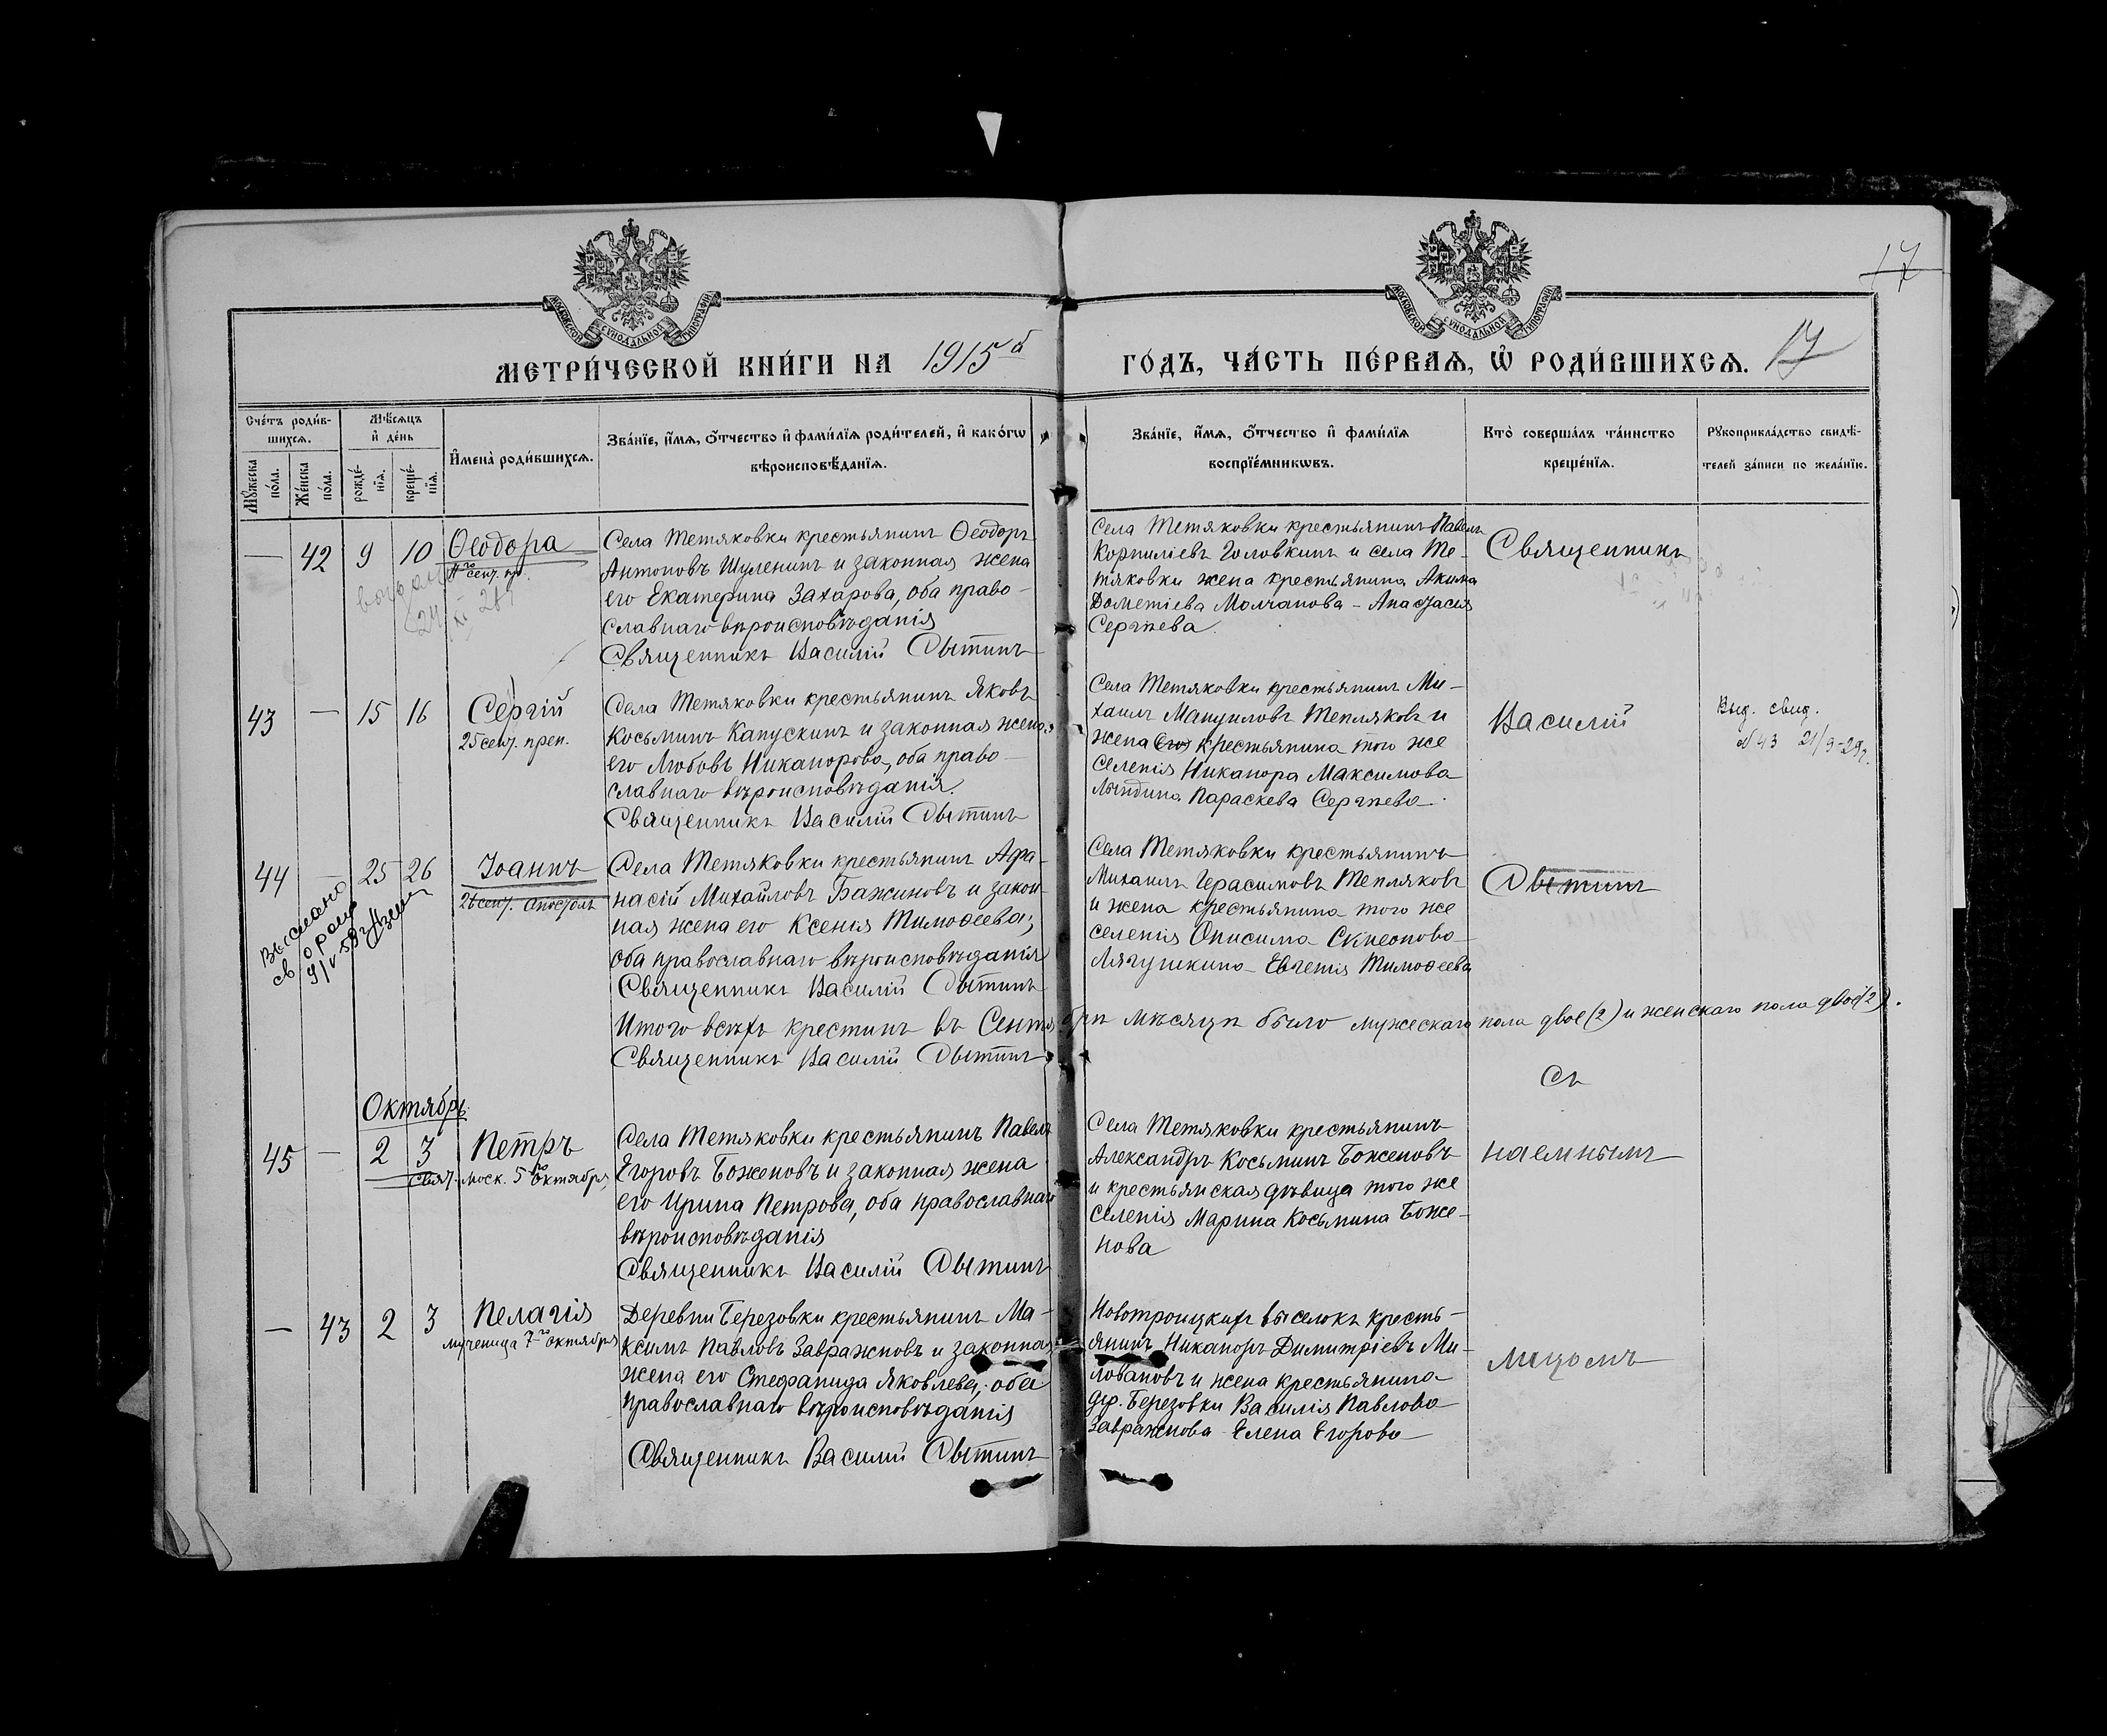 17
МЕТРИ́ЧЕСКОЙ КНИ́ГИ НА 1915й ГО́ДЪ, ЧА́СТЬ ПЕ́РВАЯ, Ѡ҆ РОДИ́ВШИХСЯ. 17
МОСКОВСКОЙ СѴНОДАЛЬНОЙ ТИПОГРАФІИ
МОСКОВСКОЙ СѴНОДАЛЬНОЙ ТИПОГРАФІИ
Сче́тъ роди́в-
шихся.
Мѣ́сяцъ
и҆ де́нь
Му́жеска
по́ла.
Же́нска
по́ла.
рожде́-
нїя.
креще́-
нїя.
И҆мена̀ роди́вшихся.
Зва́нїе, и҆́мя, ѻ҆́тчество и҆ фами́лїя роди́телей, и҆ како́гѡ
вѣроисповѣ́данїя.
Зва́нїе, и҆́мя, ѻ҆́тчество и҆ фами́лїя
воспрїе́мникѡвъ.
Кто̀ соверша́лъ та́инство
креще́нїя.
Рукоприкла́дство свидѣ́-
телей за́писи по жела́нїю.
— 42 9 10 Ѳеодора
11го сент. пр.
Села Тетяковки крестьянинъ Ѳеодоръ
Антоновъ Шуленинъ и законная жена
его Екатерина Захарова, оба право-
славнаго вѣроисповѣданія
Священникъ Василій Сытинъ
Села Тетяковки крестьянинъ Павелъ
Корниліевъ Головкинъ и села Те-
тяковки жена крестьянина Акима
Дометіева Молчанова - Анастасія
Сергѣева.
Священникъ
43 — 15 16 Сергій
25 сент. преп.
Села Тетяковки крестьянинъ Яковъ
Косьминъ Капускинъ и законная жена
его Любовь Никанорова, оба право-
славнаго вѣроисповѣданія.
Священникъ Василій Сытинъ
Села Тетяковки крестьянинъ Ми-
хаилъ Мануиловъ Тепляковъ и
жена его крестьянина того же
селенія Никанора Максимова
Параскева Сергѣева.
Василій
Выд. свид.
№ 43 21/9-29г.
44 — 25 26 Іоаннъ
26 сент. апостолъ
Выслано
9/V 59г.
Села Тетяковки крестьянинъ Афа-
насій Михайловъ Бажиновъ и закон-
ная жена его Ксенія Тимоѳеева;
оба православнаго вѣроисповѣданія
Священникъ Василій Сытинъ
Села Тетяковки крестьянинъ
Михаилъ Герасимовъ Тепляковъ
и жена крестьянина того же
селенія Онисима Симеонова
Лягушкина - Евгенія Тимоѳеева
Сытинъ
Итого всѣхъ крестинъ въ Сентябрѣ мѣсяцѣ было мужескаго пола двое (2) и женскаго пола двое (2).
Священникъ Василій Сытинъ
Съ
Октябрь
45 — 2 3 Петръ
свят. моск. 5го октября
Села Тетяковки крестьянинъ Павелъ
Егоровъ Боженовъ и законная жена
его Ирина Петрова, оба православнаго
вѣроисповѣданія
Священникъ Василій Сытинъ
Села Тетяковки крестьянинъ
Александръ Косьминъ Боженовъ
и крестьянская дѣвица того же
селенія Марина Косьмина Боже-
нова
наемнымъ
— 43 2 3 Пелагія
мученица 7го октября
Деревни Березовки крестьянинъ Ма-
ксимъ Павловъ Завражновъ и законная
жена его Стефанида Яковлева, оба
православнаго вѣроисповѣданія
Священникъ Василій Сытинъ
Новотроицкихъ выселокъ кресть-
янинъ Никаноръ Димитріевъ Ми-
ловановъ и жена крестьянина
др. Березовки Василія Павлова
Завражнова Елена Егорова
лицомъ